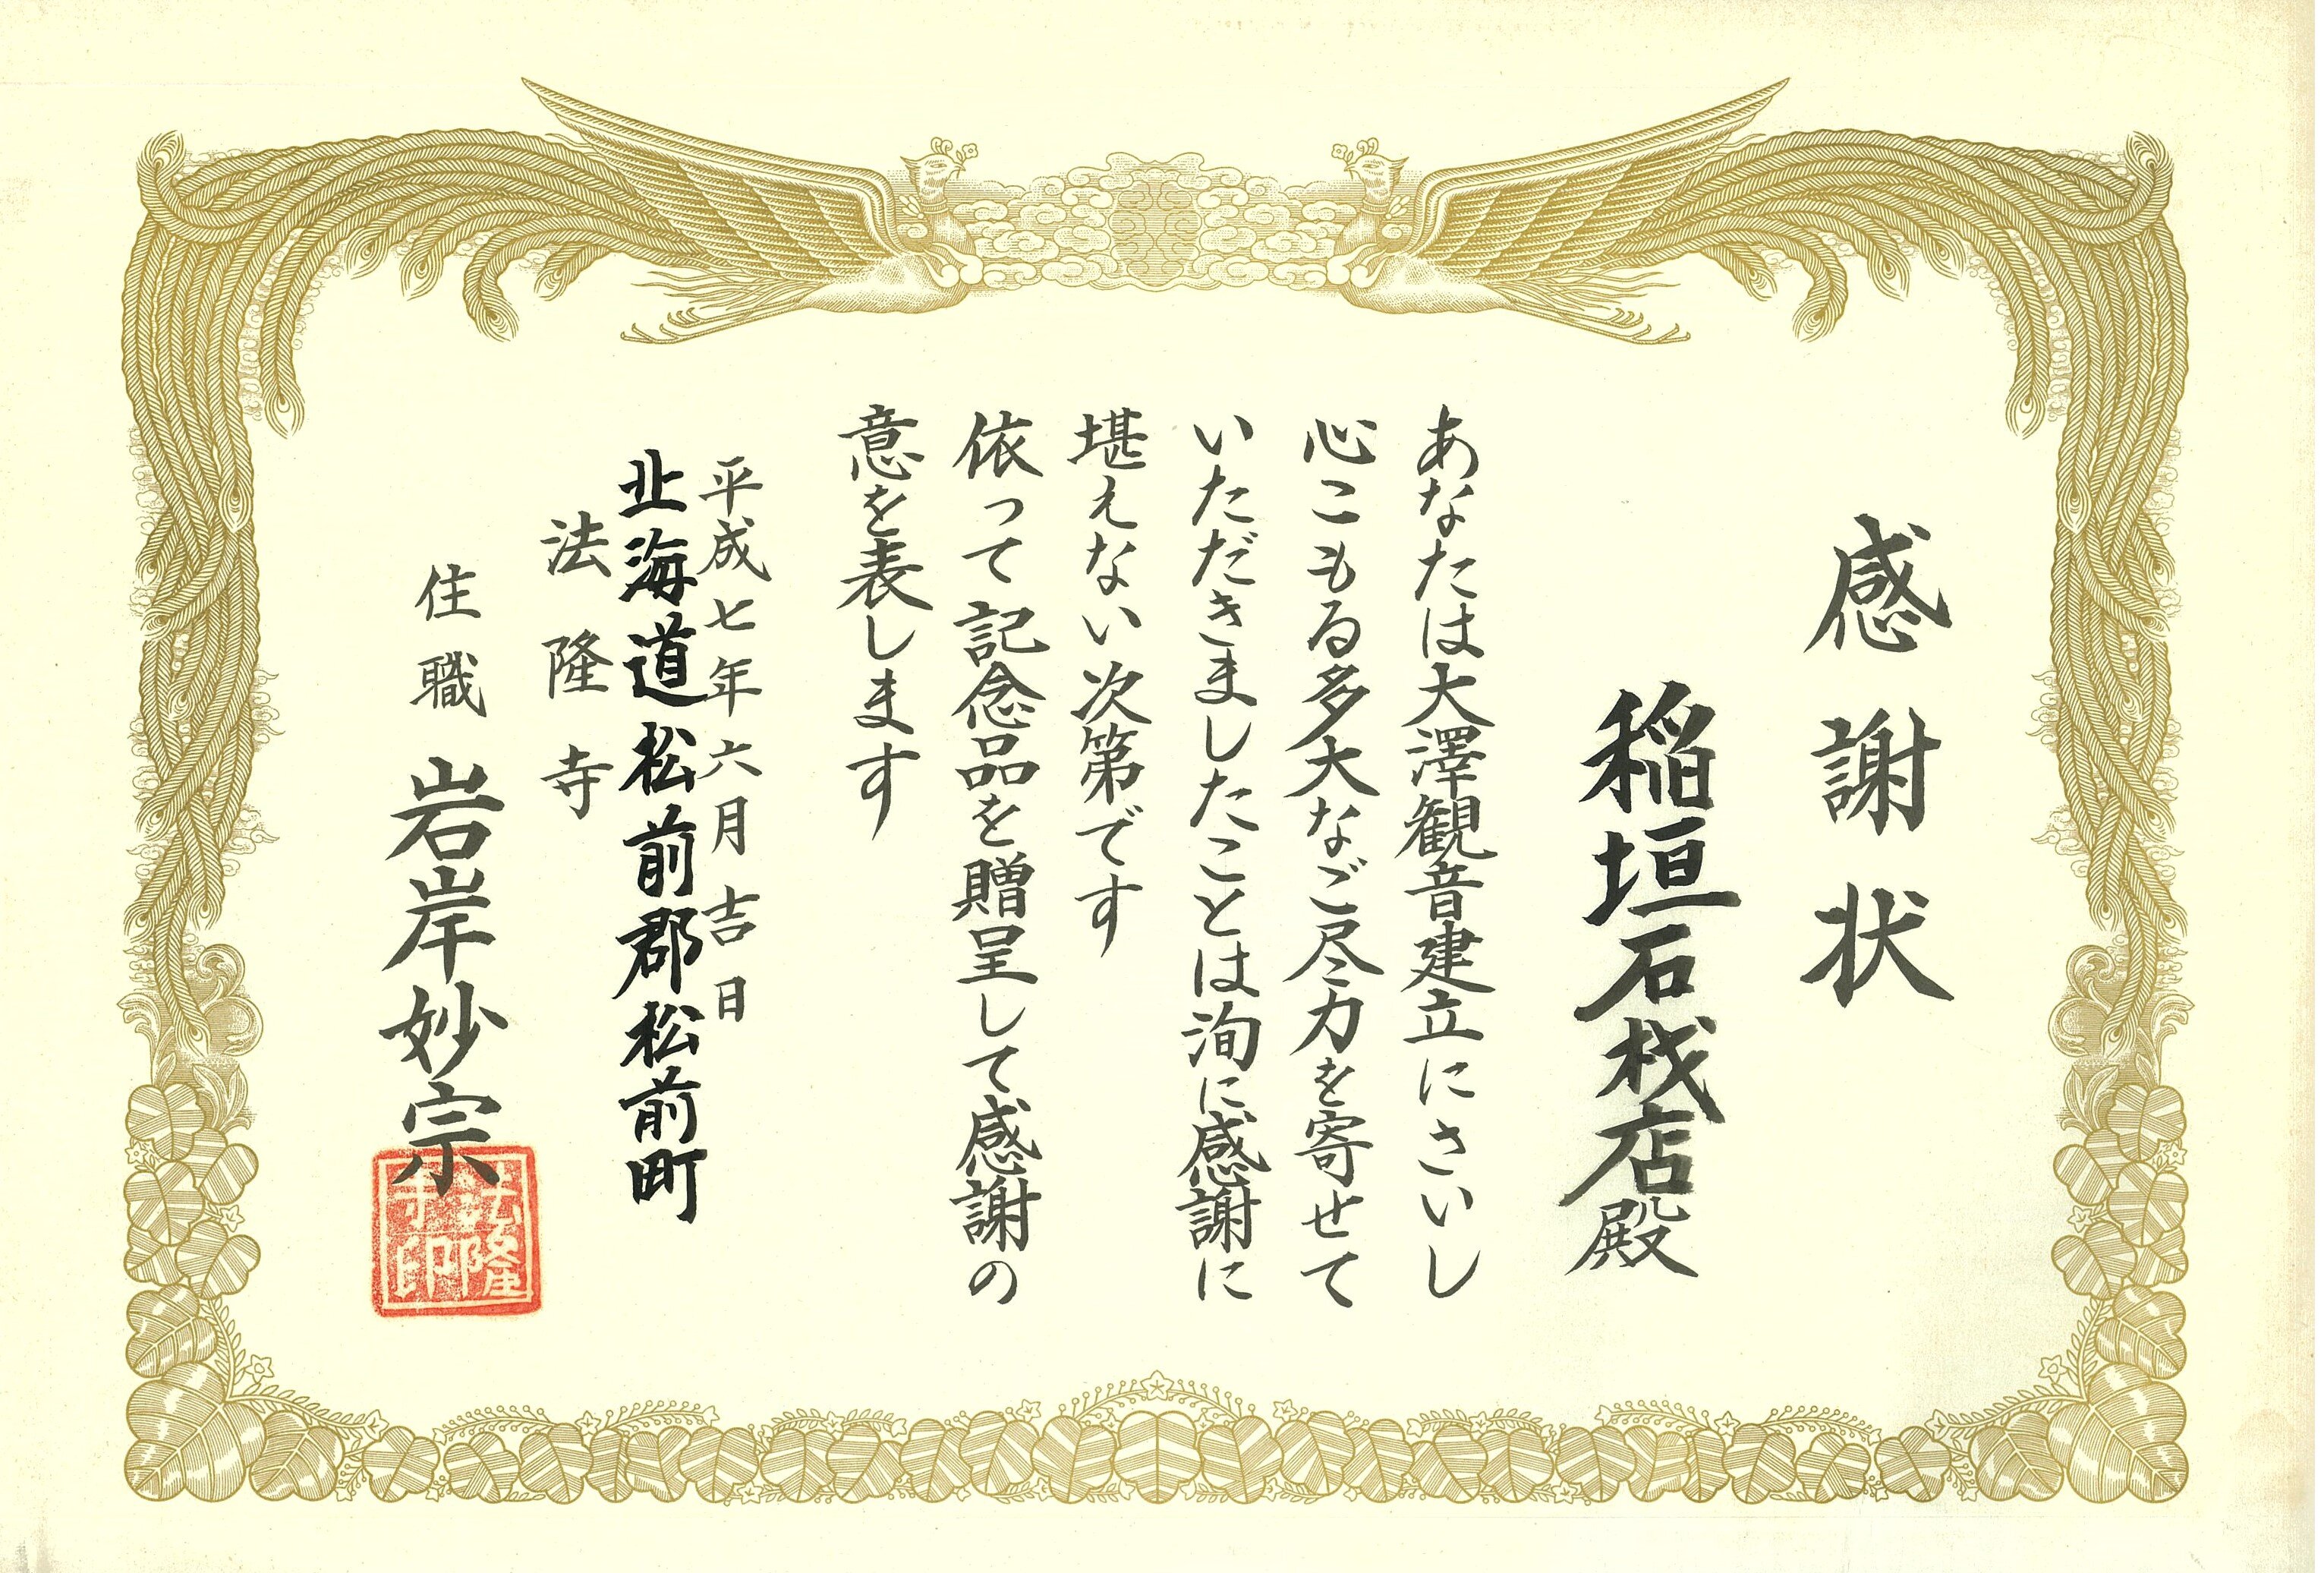 感謝状
稲垣石材店殿
あなたは大澤観音建立にさいし
心こもる多大なご尽力を寄せて
いただきましたことは洵に感謝に
堪えない次第です
依って記念品を贈呈して感謝の
意を表します
平成七年六月吉日
北海道松前郡松前町
法隆寺
住職 岩岸妙宗
法隆
寺印